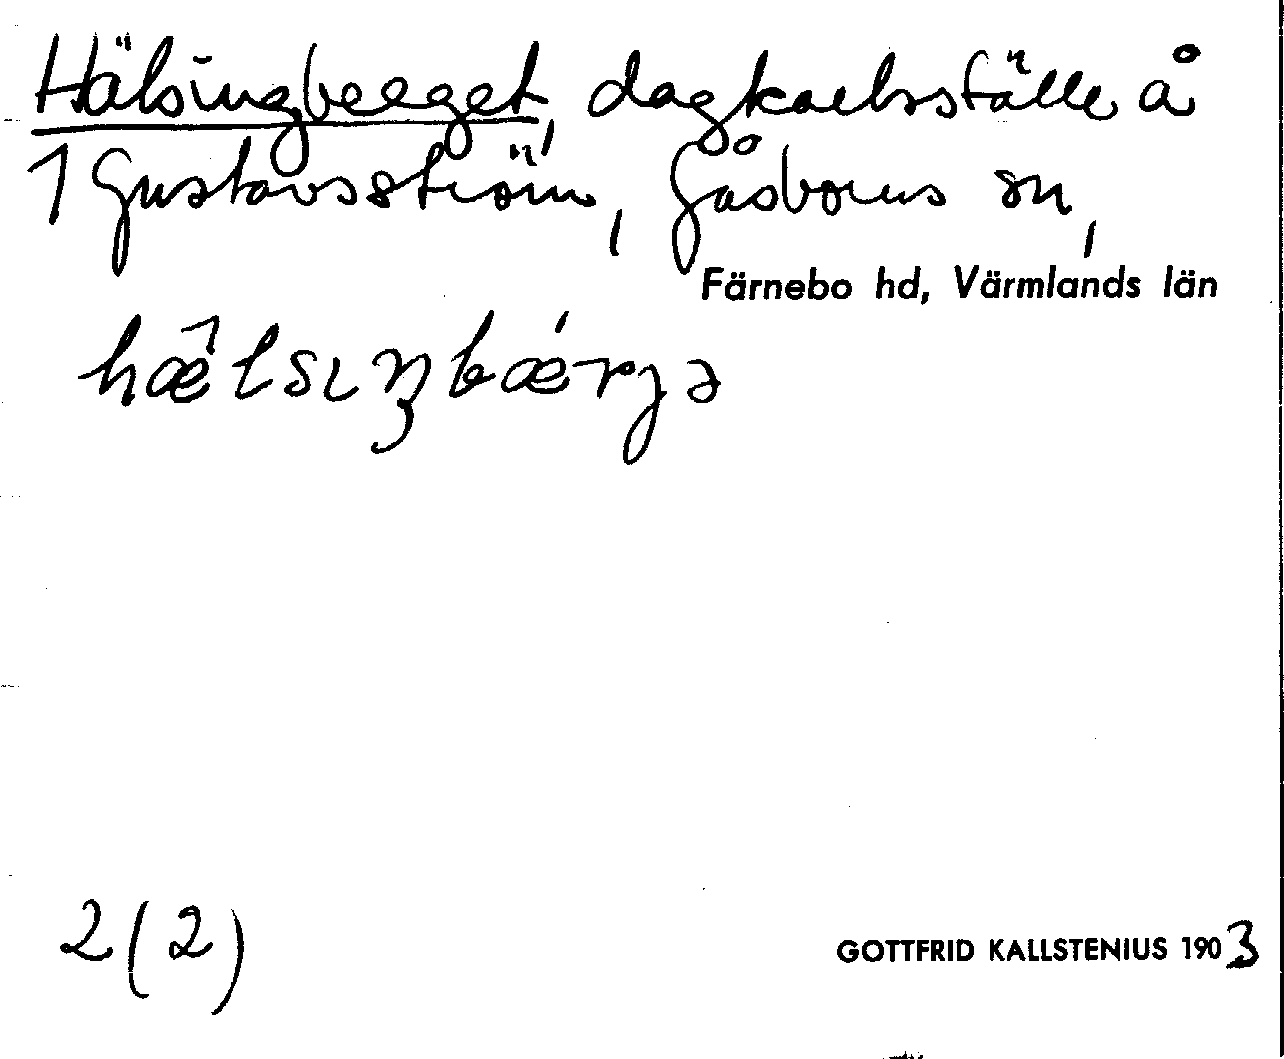 Hälsingberget, dagkarlsställe å
1 Gustavsström, Gåsborns sn,
Färnebo hd, Värmlands län
hæ̂lsıŋbǽrjə
2(2)
GOTTFRID KALLSTENIUS 1903